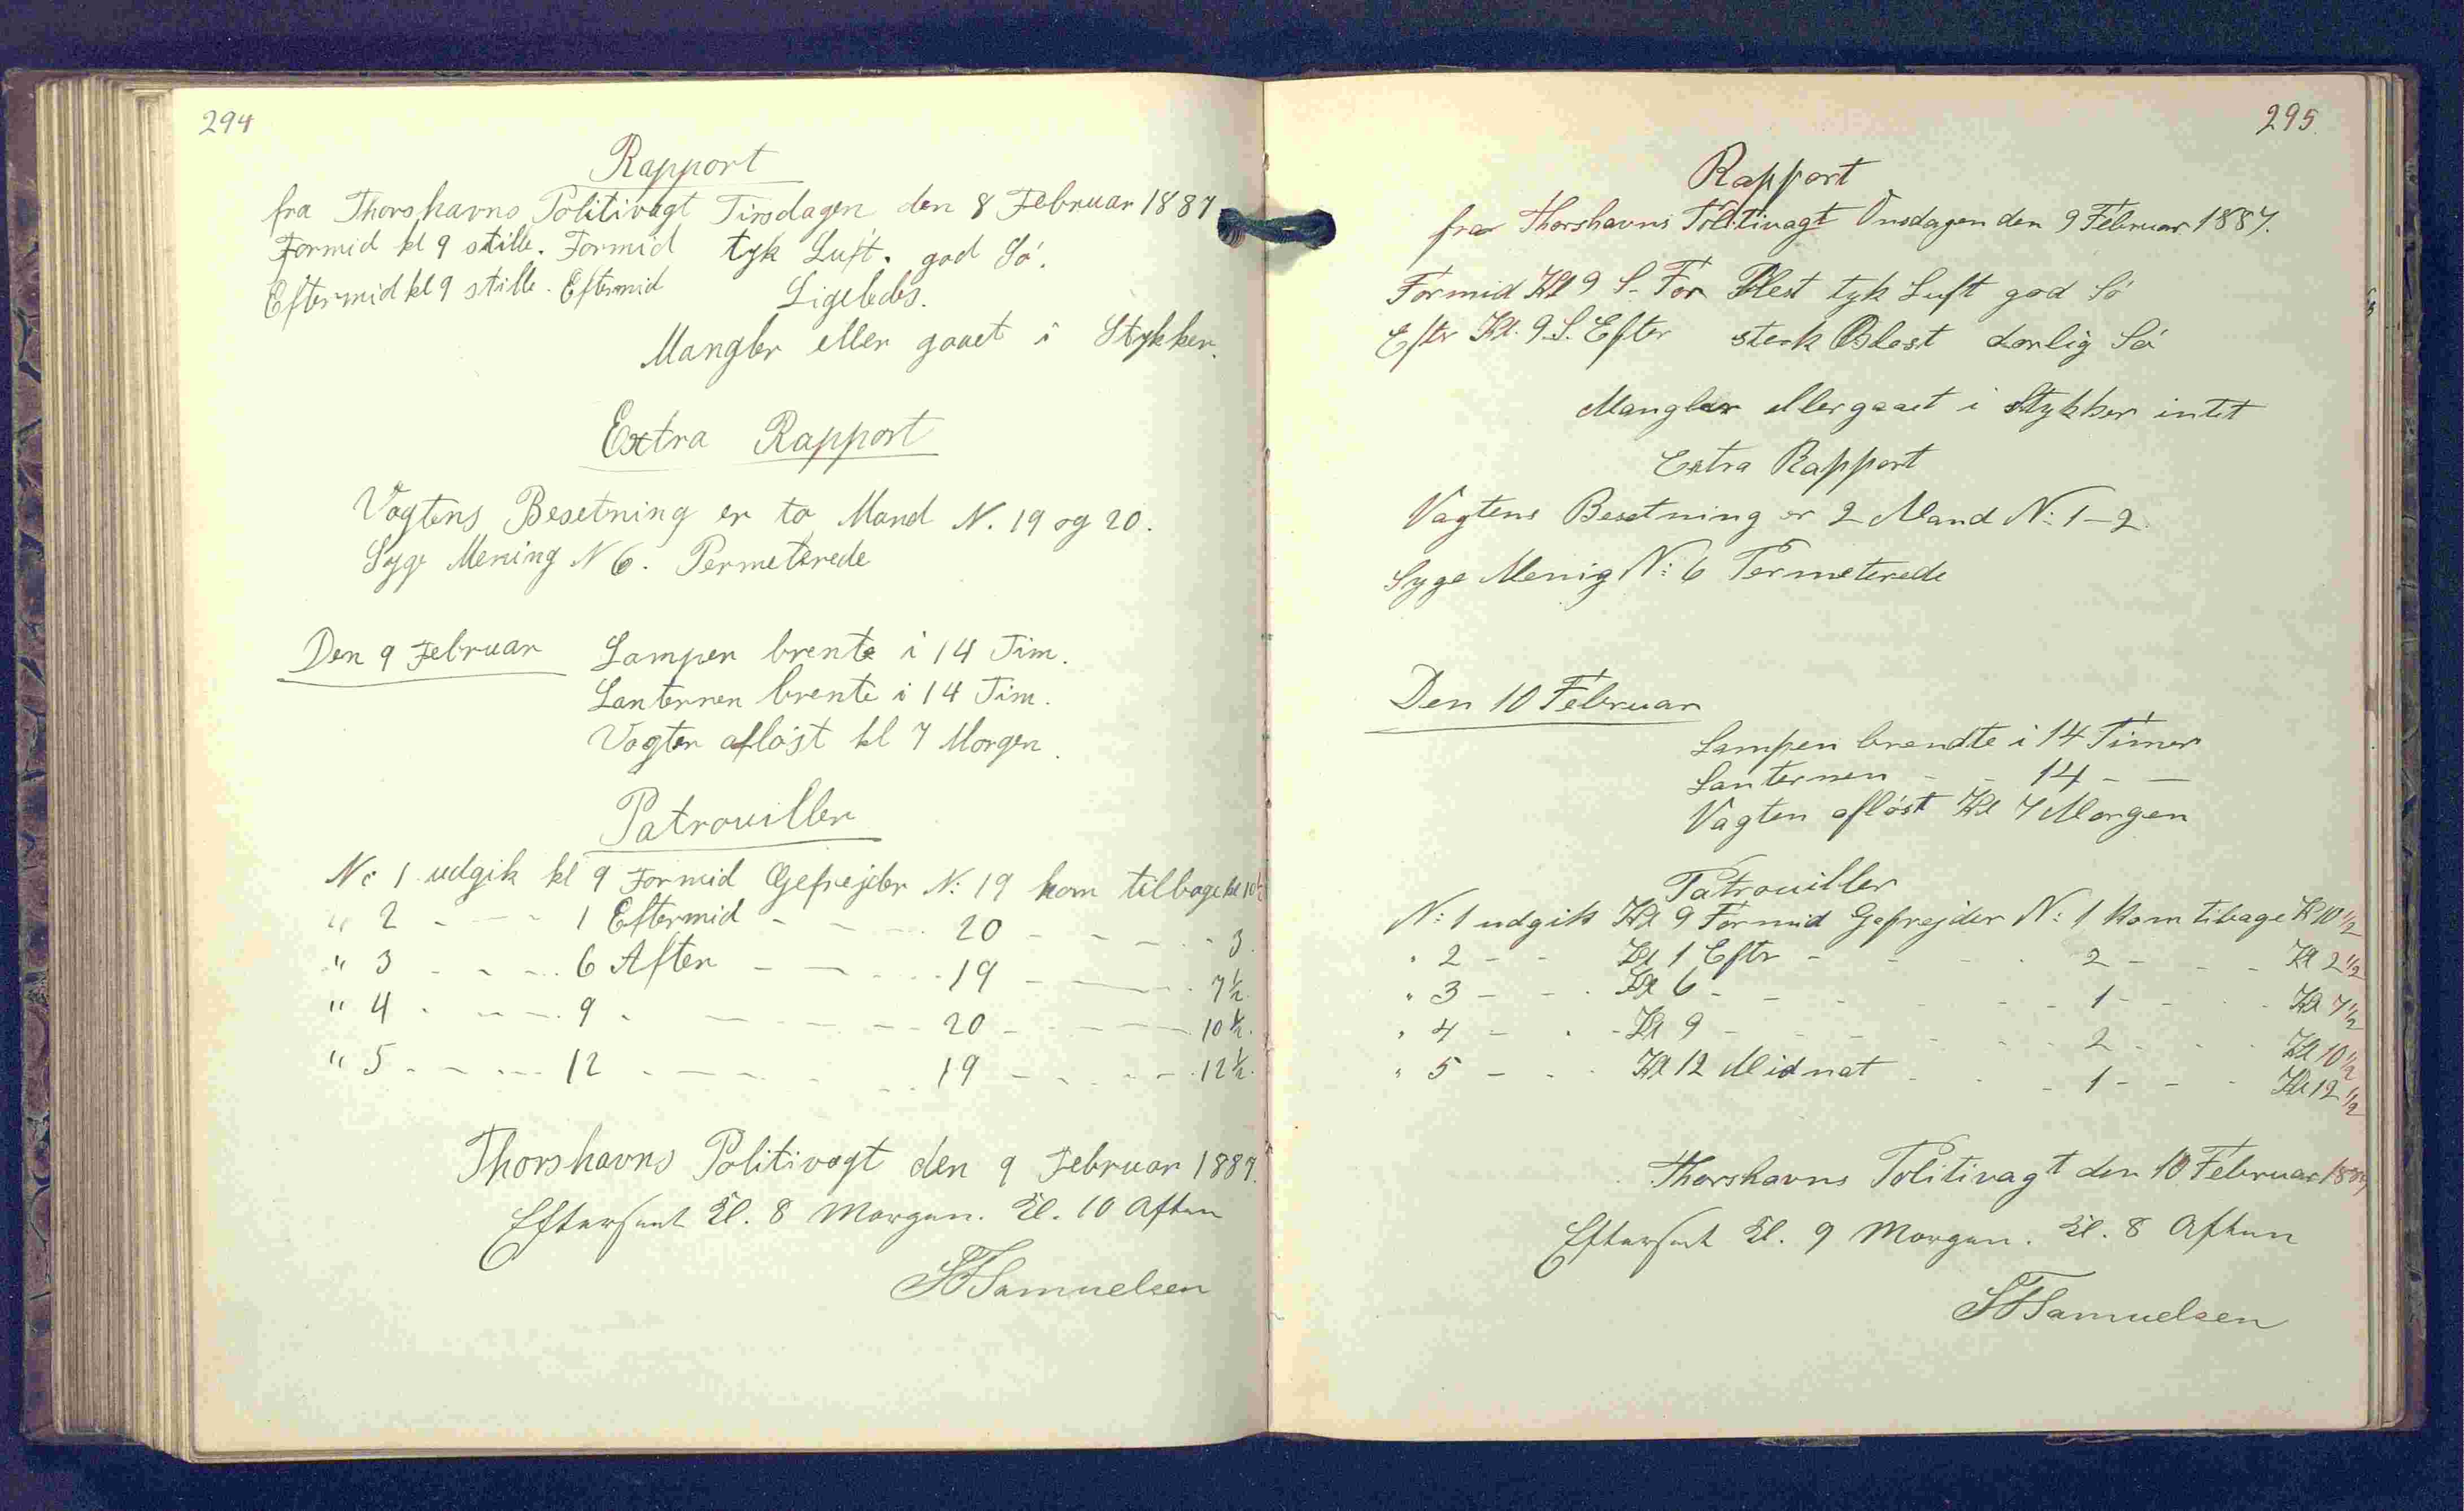 294
Rapport
fra Thorshavns Politivagt Tirsdagen den 8 Februar 1887
Formid kl 9 stille. Formid tyk Luft. god Sö.
Eftermid kl 9 stille. Eftermid Ligeledes.
Mangler eller gaaet i Stykker.
Extra Rapport
Vagtens Besetning er to Mand N. 19 og 20.
Syge Mening N 6. Permeterede
Den 9 Februar Lampen brente i 14 Tim.
Lanternen brente i 14 Tim.
Vagten afløst kl 7 Morgen.
Patrouiller
N: 1 udgik kl 9 Formid Gefrejder N: 19 kom tilbage kl 10½
" 2 - - - 1 Eftermid - - - 20 - - - - 3.
" 3 - - - 6 Aften - - - 19 - - - 7½.
" 4 - - - 9 - - - - 20 - - - 10½.
" 5 - - - 12 - - - - 19 - - - 12½.
Thorshavns Politivagt den 9 Februar 1887.
Efterseet Kl. 8 Morgen. Kl. 10 Aften
Samuelsen
295.
Rapport
fra Thorshavns Politivagt Onsdagen den 9 Februar 1887.
Formid Kl 9 S. For Blest tyk Luft god Sö
Efter Kl. 9 S. Efter sterk Blest dorlig Sö
Mangler eller gaaet i Stykker intet
Extra Rapport
Vagtens Besetning er 2 Mand N: 1-2.
Syge Menig N: 6 Permeterede
Den 10 Februar
Lampen brendte i 14 Timer
Lanternen - - 14 - -
Vagten afløst Kl 7 Morgen
Patrouiller
N: 1 udgik Kl 9 Formid Gefrejder N: 1 kom tibage Kl 10½
" 2 - - Kl 1 Eftr - - - 2 - - - Kl 2½
" 3 - - - Kl 6 - - - - 1 - - - Kl 7½
" 4 - - - Kl 9 - - - - 2 - - - Kl 10½
" 5 - - - Kl 12 Midnat - - - 1 - - - Kl 12½
Thorshavns Politivagt den 10 Februar 1887
Efterseet Kl. 9 Morgen. Kl. 8 Aften
Samuelsen